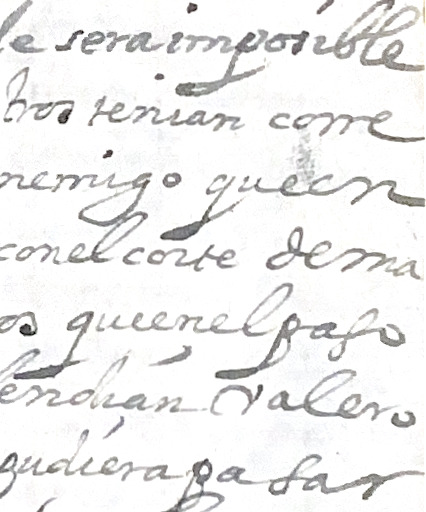 le sera imposible
tros tenian corre
nemigo que en
con el corte de ma
os que en el paso
fendian valero
pudiera pasar